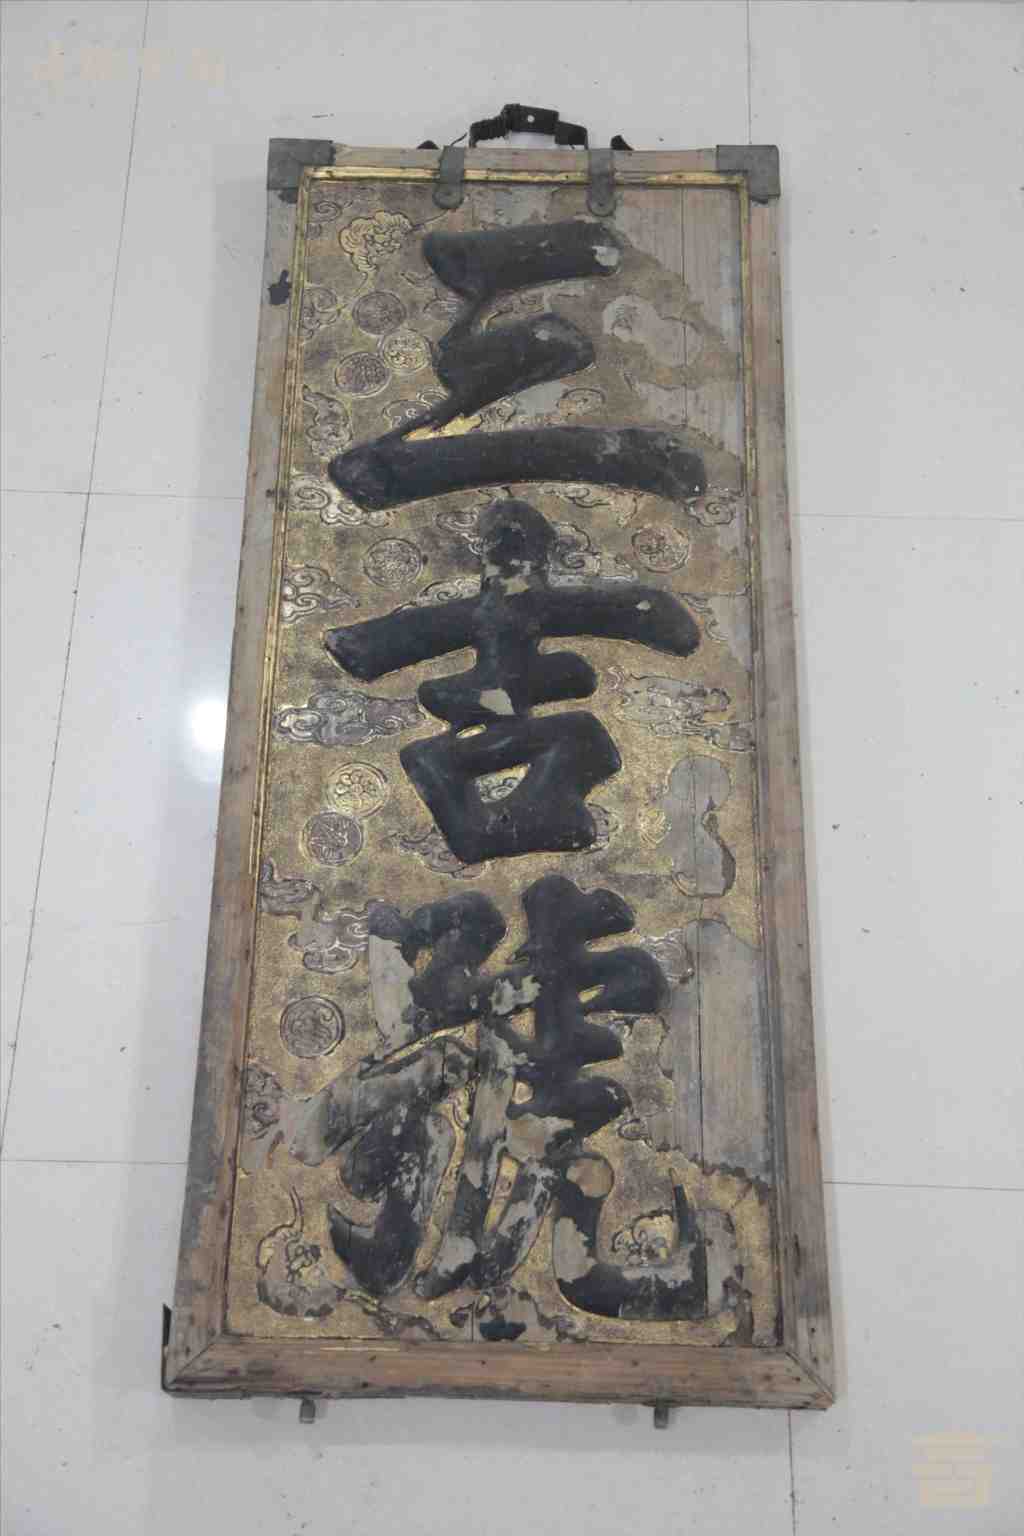 三吉號